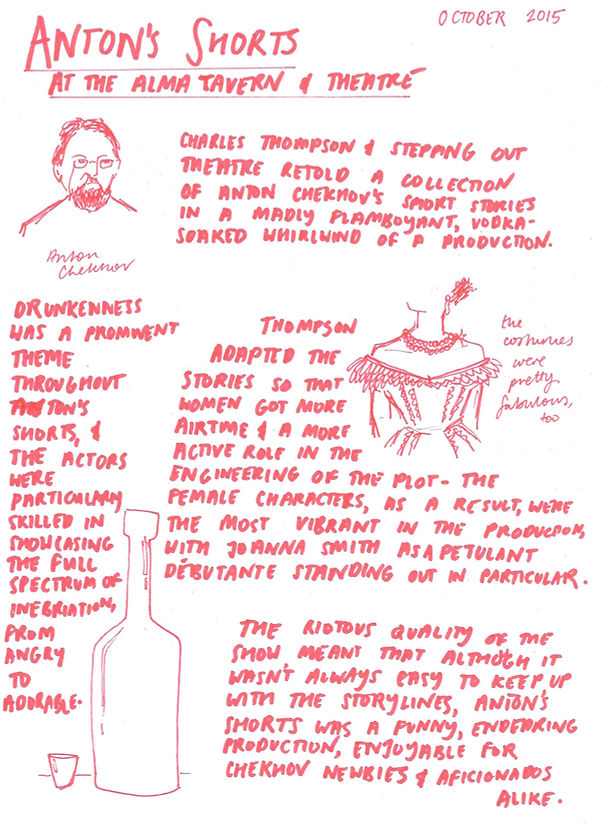 OCTOBER 2015
ANTON'S SHORTS
AT THE ALMA TAVERN & THEATRE
CHARLES THOMPSON & STEPPING OUT
THEATRE RETOLD A COLLECTION
OF ANTON CHEKHOV'S SHORT STORIES
IN A MADLY FLAMBOYANT, VODKA-
SOAKED WHIRLWIND OF A PRODUCTION.
Anton
Chekhov
DRUNKENNESS
WAS A PROMINENT
THEME
THROUGHOUT
ANTON'S
SHORTS, &
THE ACTORS
WERE
PARTICULARLY
SKILLED IN
SHOWCASING
THE FULL
SPECTRUM OF
INEBRIATION,
FROM
ANGRY
TO
ADORABLE.
THOMPSON
ADAPTED THE
STORIES SO THAT
WOMEN GOT MORE
AIRTIME & A MORE
ACTIVE ROLE IN THE
ENGINEERING OF THE PLOT - THE
FEMALE CHARACTERS, AS A RESULT, WERE
THE MOST VIBRANT IN THE PRODUCTION,
WITH JOANNA SMITH AS A PETULANT
DÉBUTANTE STANDING OUT IN PARTICULAR.
the
costumes
were
pretty
fabulous,
too
THE RIOTOUS QUALITY OF THE
SHOW MEANT THAT ALTHOUGH IT
WASN'T ALWAYS EASY TO KEEP UP
WITH THE STORYLINES, ANTON'S
SHORTS WAS A FUNNY, ENDEARING
PRODUCTION, ENJOYABLE FOR
CHEKHOV NEWBIES & AFICIONADOS
ALIKE.